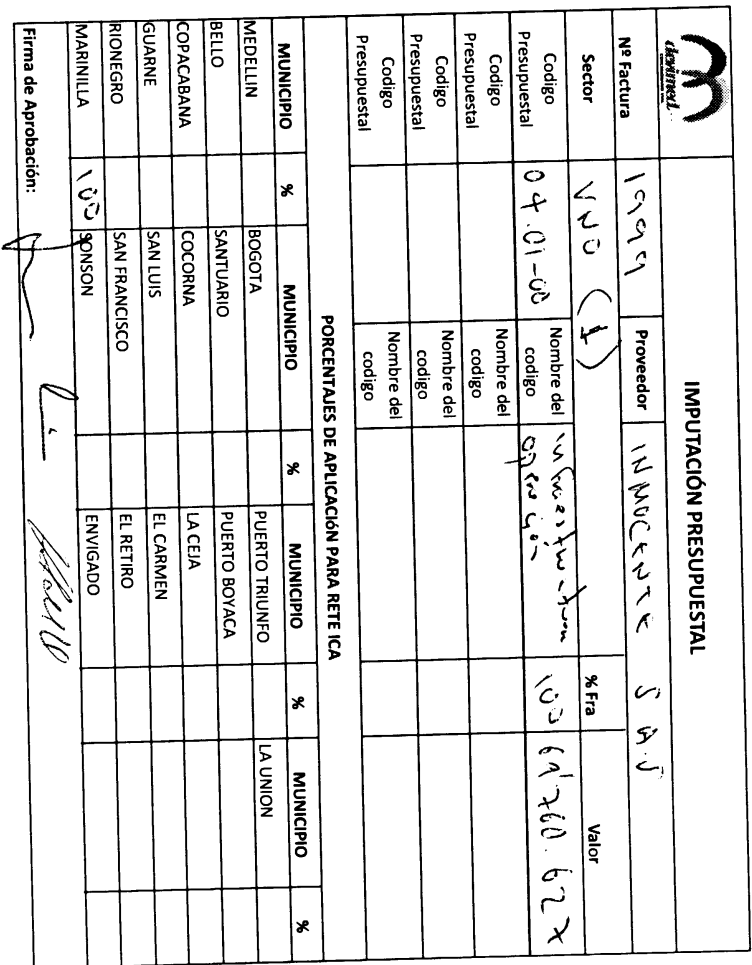 devimed
IMPUTACIÓN PRESUPUESTAL
Nº Factura 1999 Proveedor INMOCENTE S.A.S
Sector VNO (1)
% Fra Valor
Codigo Presupuestal 04.01-00 Nombre del codigo infraestructura operación 100 69'760.627
Codigo Presupuestal Nombre del codigo
Codigo Presupuestal Nombre del codigo
Codigo Presupuestal Nombre del codigo
PORCENTAJES DE APLICACIÓN PARA RETE ICA
MUNICIPIO % MUNICIPIO % MUNICIPIO % MUNICIPIO %
MEDELLIN BOGOTA PUERTO TRIUNFO LA UNION
BELLO SANTUARIO PUERTO BOYACA
COPACABANA COCORNA LA CEJA
GUARNE SAN LUIS EL CARMEN
RIONEGRO SAN FRANCISCO EL RETIRO
MARINILLA 100 SONSON ENVIGADO
Firma de Aprobación: